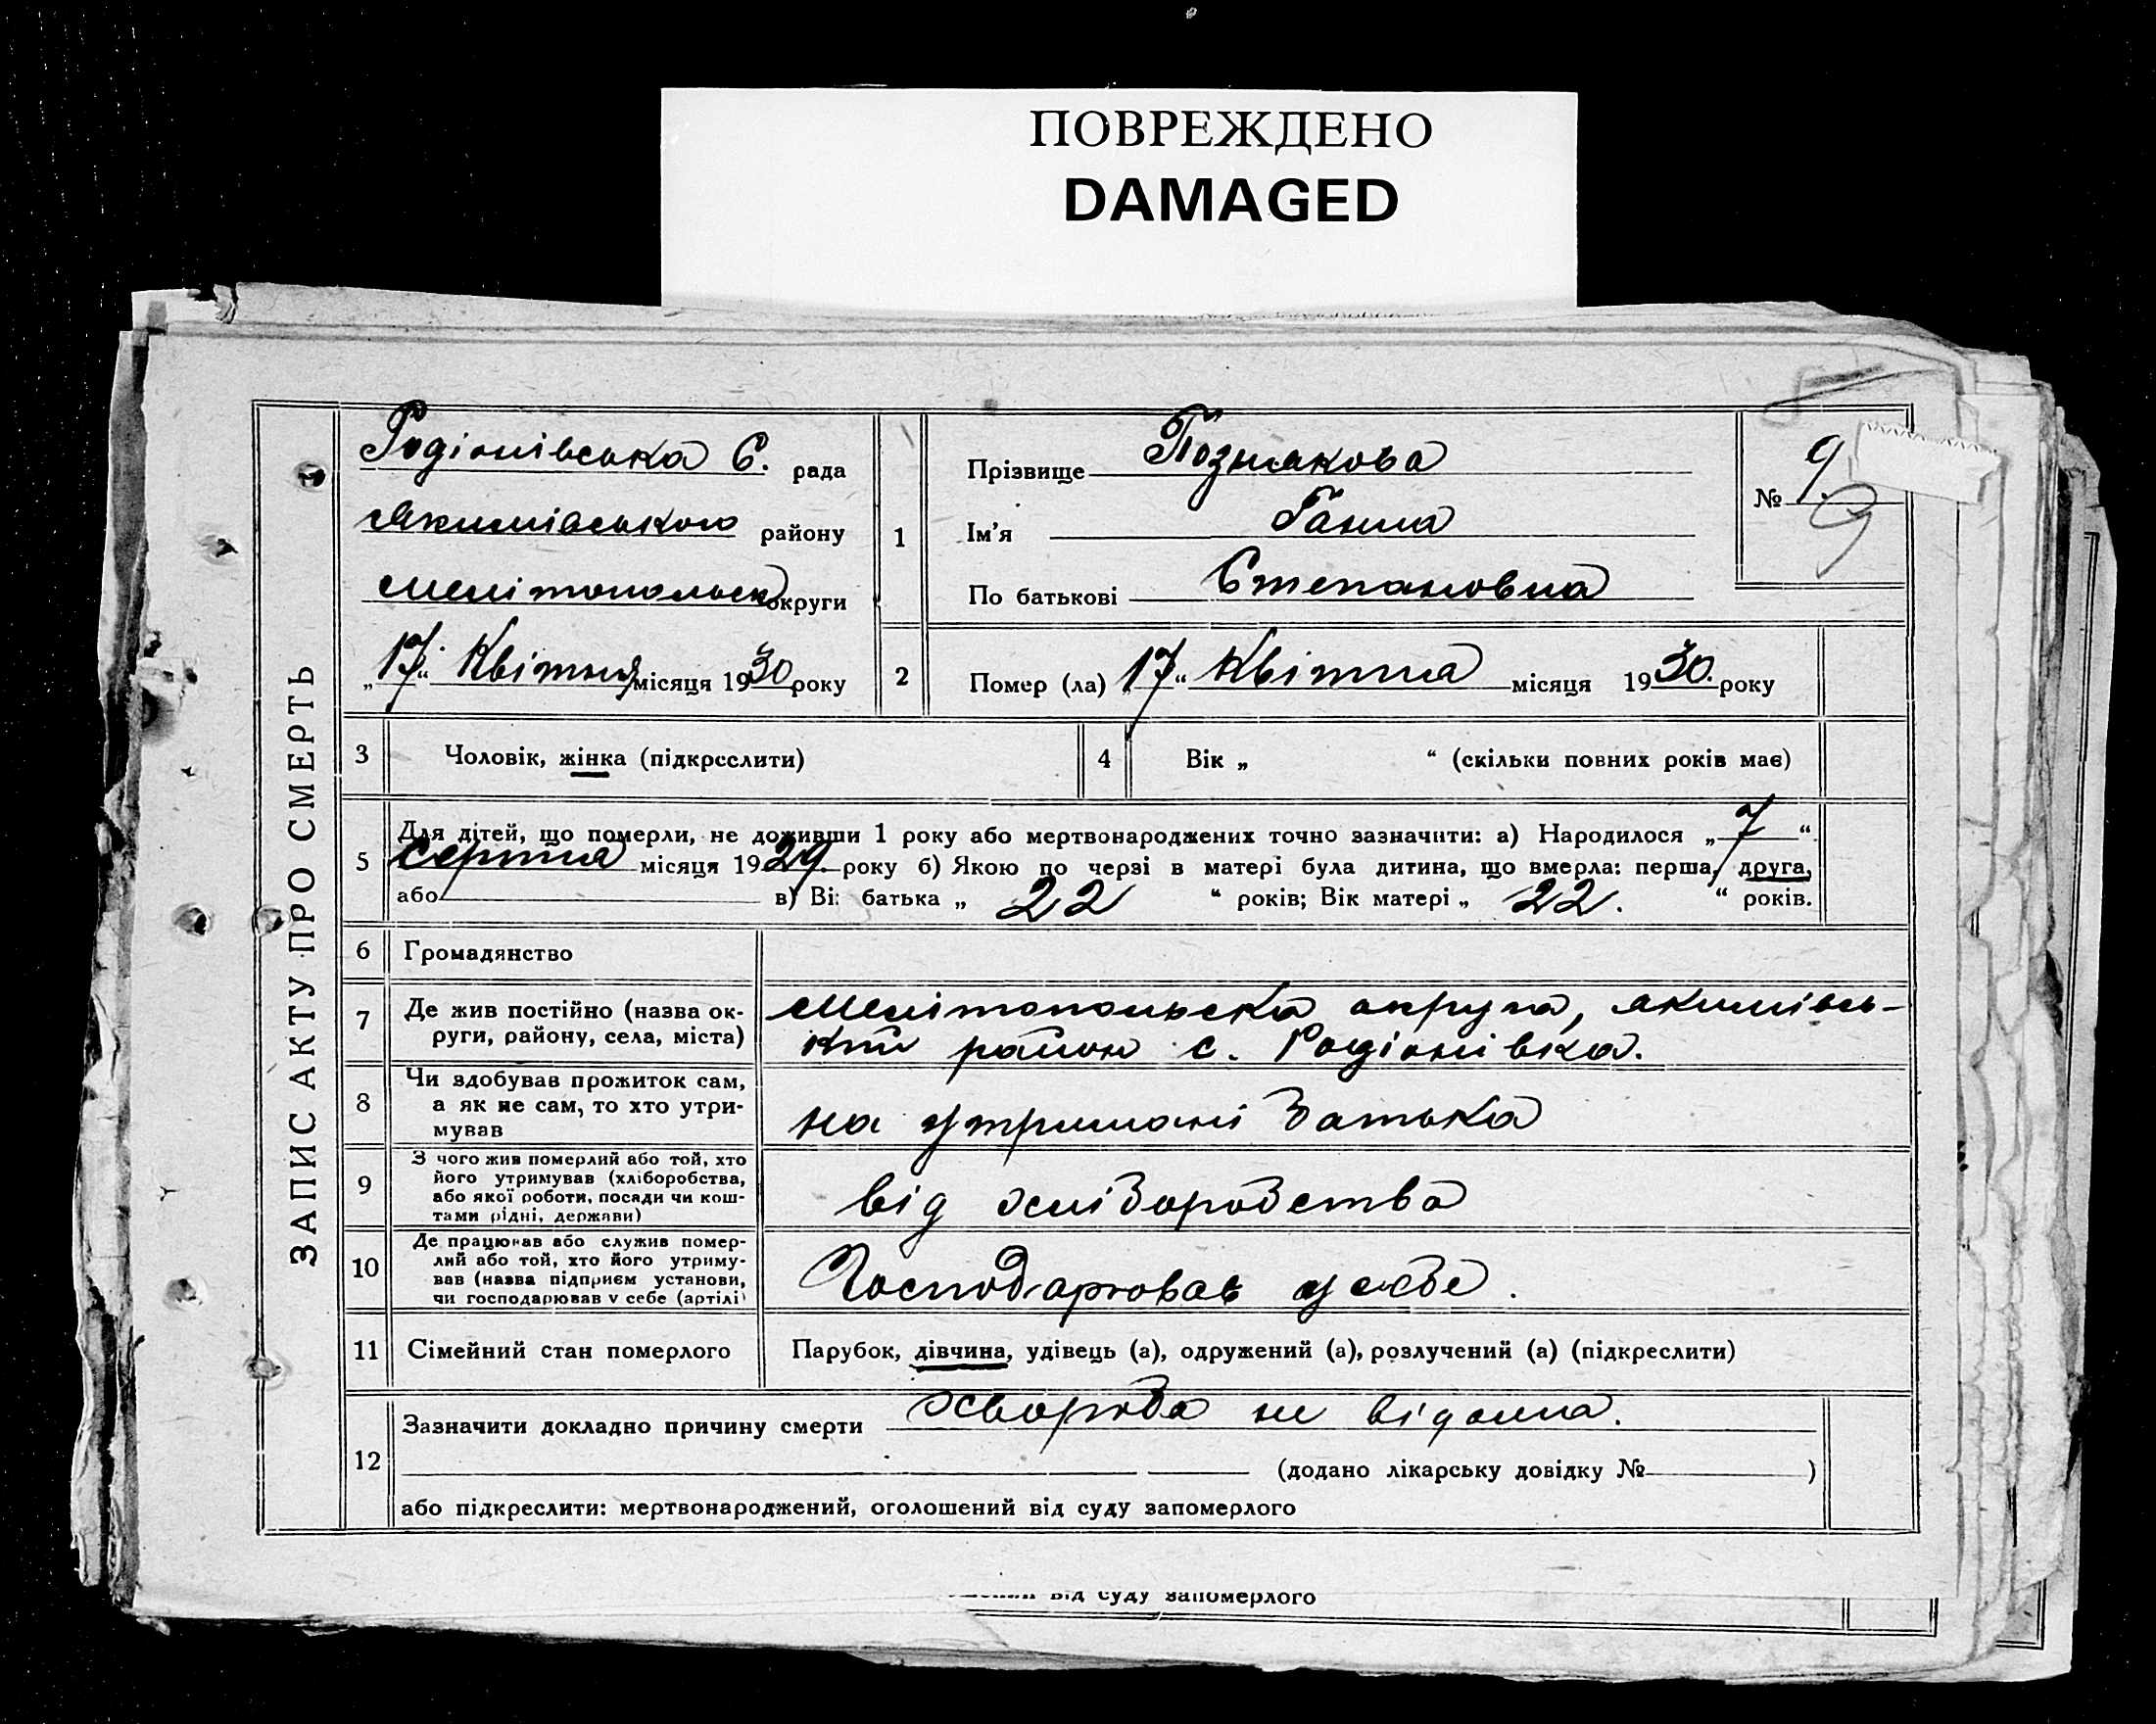 ПОВРЕЖДЕНО
DAMAGED
ЗАПИС АКТУ ПРО СМЕРТЬ
Родіонівська С. рада
Якимівського району
Мелітопольськ округи
„17“ Квітня місяця 1930 року
1
Прізвище Познякова
Ім'я Ганна
По батькові Степановна
№ 9.
9
2
Помер (ла) 17“ Квітня місяця 1930. року
3 Чоловік, жінка (підкреслити)
4 Вік „ “ (скільки повних років має)
5 Для дітей, що померли, не доживши 1 року або мертвонароджених точно зазначити: а) Народилося „7“
серпня місяця 1929. року б) Якою по черзі в матері була дитина, що вмерла: перша, друга,
або в) Ві: батька „ 22 “ років; Вік матері „ 22. “ років.
6 Громадянство
7 Де жив постійно (назва ок-
руги, району, села, міста)
Мелітопольска округа, якимівсь-
кий район с. Родіонівка.
8 Чи здобував прожиток сам,
а як не сам, то хто утри-
мував
на утримані батька
9 З чого жив померлий або той, хто
його утримував (хліборобства,
або якої роботи, посади чи кош-
тами рідні, держави)
від хліборобства
10 Де працював або служив помер-
лий або той, хто його утриму-
вав (назва підприєм установи,
чи господарював у себе (артілі)
Господарював у себе.
11 Сімейний стан померлого
Парубок, дівчина, удівець (а), одружений (а), розлучений (а) (підкреслити)
12 Зазначити докладно причину смерти хвороба не відома.
(додано лікарську довідку № )
або підкреслити: мертвонароджений, оголошений від суду запомерлого
від суду запомерлого